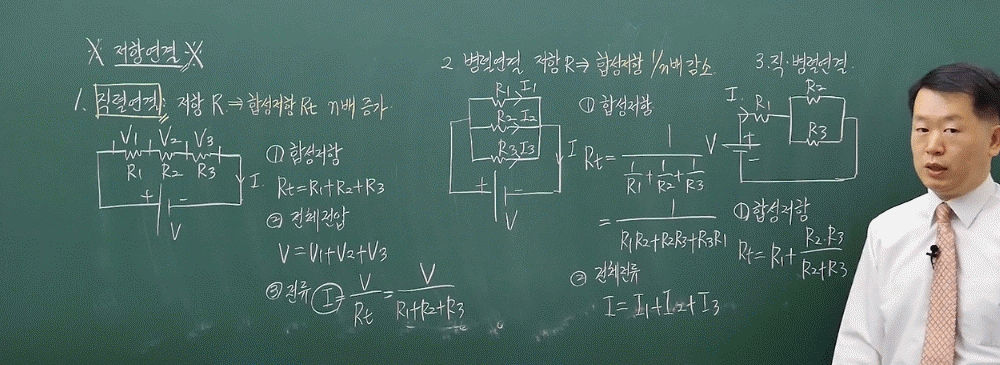 ※ 저항연결 ※
1. 직렬연결: 저항 R ⇒ 합성저항 Rt n배 증가
V1 V2 V3
R1 R2 R3
I
+ -
V
① 합성저항
Rt = R1 + R2 + R3
② 전체전압
V = V1 + V2 + V3
③ 전류 I = V/Rt = V/(R1 + R2 + R3)
2. 병렬연결 저항 R ⇒ 합성저항 1/n배 감소
R1 I1
R2 I2
R3 I3
I
+ -
V
① 합성저항
Rt = 1/(1/R1 + 1/R2 + 1/R3)
= 1/(R1R2 + R2R3 + R3R1)
② 전체전류
I = I1 + I2 + I3
3. 직·병렬연결
I
R1
R2
R3
V
+
-
① 합성저항
Rt = R1 + R2·R3/(R2 + R3)